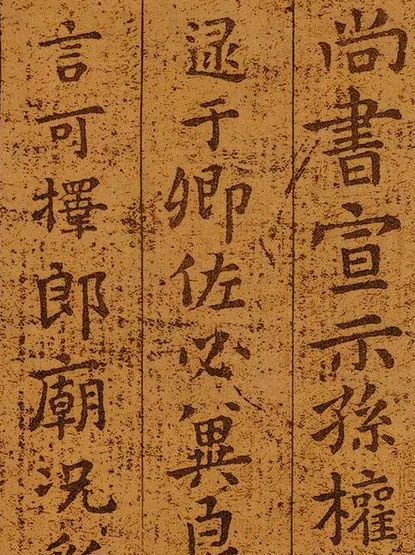 尚書宣示孫權
逮于卿佐必冀良
言可擇郎廟況